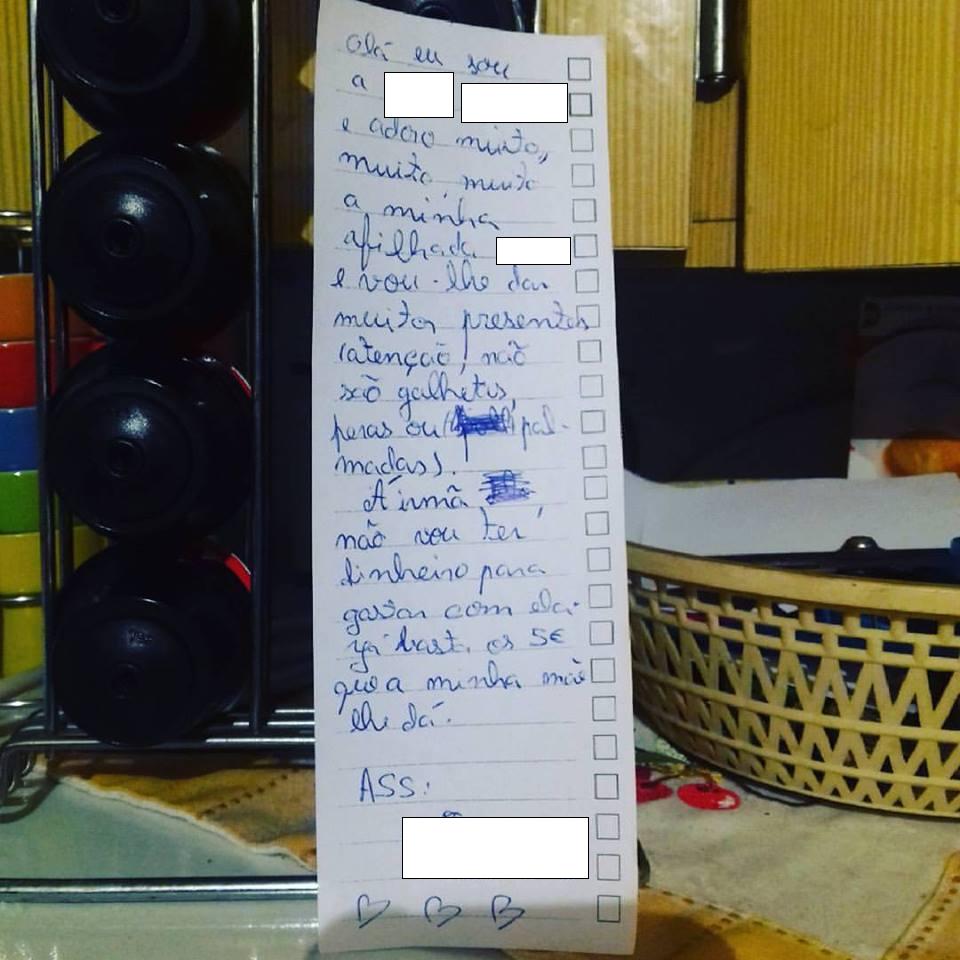 Olá eu sou
a
e adoro muito,
muito, muito
a minha
afilhada
e vou-lhe dar
muitos presentes
(atenção, não
são galhetas,
peras ou pal-
madas).
Á irmã
não vou ter
dinheiro para
gastar com ela.
Já basta os 5€
que a minha mãe
lhe dá.
ASS: